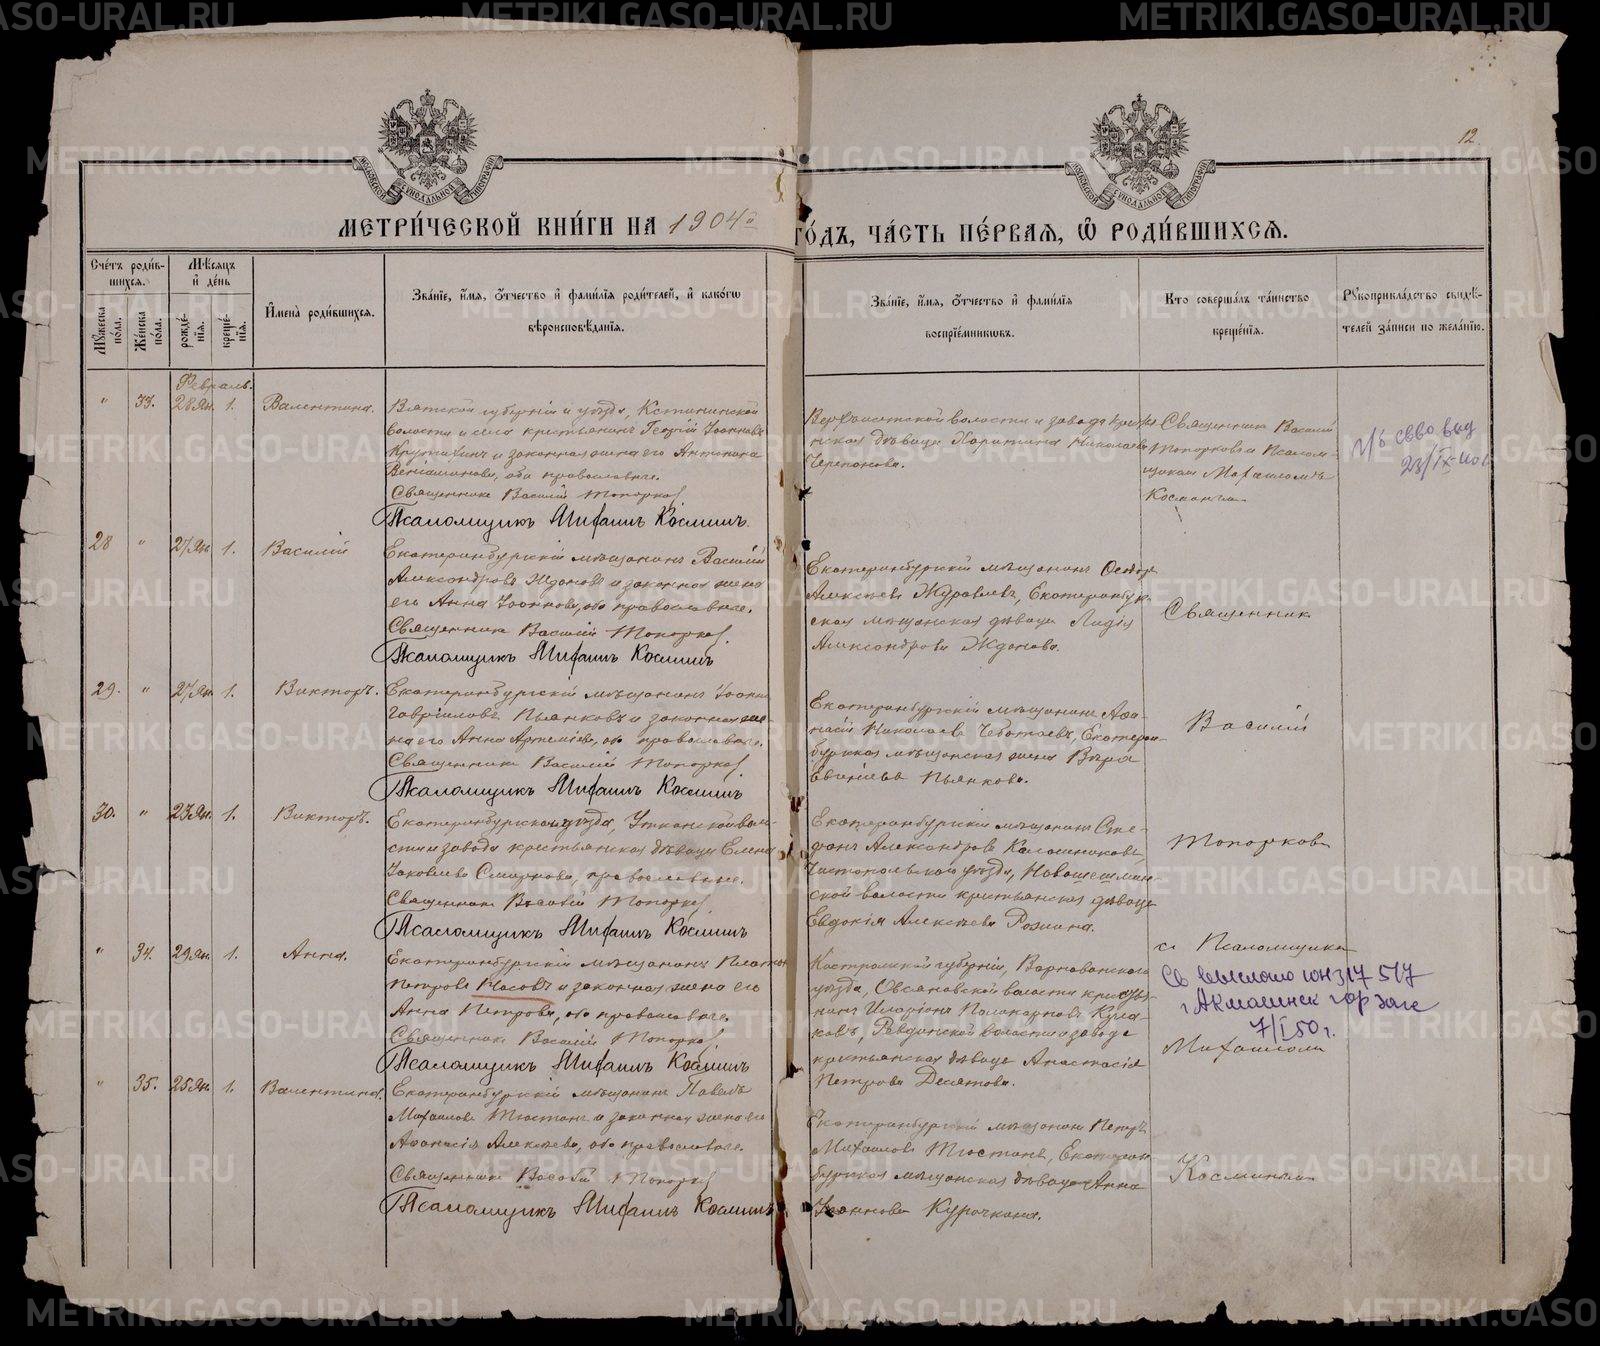 12.
МЕТРИ́ЧЕСКОЙ КНИ́ГИ НА 1904й ГО́ДЪ, ЧА́СТЬ ПЕ́РВАЯ, Ѡ РОДИ́ВШИХСЯ.
Сче́тъ роди́в-
шихся.
Мѣ́сяцъ
и де́нь
Мꙋжеска по́ла.
Же́нска по́ла.
рожде́-
нїя.
креще́-
нїя.
И́мена̀ роди́вшихся.
Зва́нїе, и́мя, о́тчество и фами́лїя роди́телей, и како́гѡ
вѣроисповѣ́данїя.
Зва́нїе, и́мя, о́тчество и фами́лїя
воспрїе́мникѡвъ.
Кто̀ соверша́лъ та́инство
креще́нїя.
Рꙋкоприкла́дство свидѣ́-
телей за́писи по жела́нїю.
Февраль.
" 33. 28 Ян. 1. Валентина.
Вятской губерніи и уѣзда, Кстининской
волости и села крестьянинъ Георгій Іоанновъ
Крутихинъ и законная жена его Антонина
Веніаминова, оба православные.
Священникъ Василій Топорков
Псаломщикъ Михаилъ Косминъ.
волости и завода крестьян-
ская дѣвица Харитина Николаева
Черепанова.
Священникъ Василій
Топорковъ и Псалом-
щикомъ Михаиломъ
Косминымъ
23/IX-40г.
28 " 27 Ян. 1. Василій
Екатеринбургскій мѣщанинъ Василій
Александровъ Ждановъ и законная жена
его Анна Іоаннова, оба православные.
Священникъ Василій Топорков.
Псаломщикъ Михаилъ Косминъ
Екатеринбургскій мѣщанинъ
Алексѣевъ Журавлевъ, Екатеринбург-
ская мѣщанская дѣвица Лидія
Александрова Жданова.
Священник
29. " 27 Ян. 1. Викторъ.
Екатеринбургскій мѣщанинъ Іоаннъ
Гавріиловъ Пьянковъ и законная же-
на его Анна Артеміева, оба православные.
Священникъ Василій Топорков.
Псаломщикъ Михаилъ Косминъ
Екатеринбургскій мѣщанинъ Афа-
насій Николаевъ Чеботаевъ, Екатерин-
бургская мѣщанская жена Вѣра
Евгеніева Пьянкова.
Василій
30. " 23 Ян. 1. Викторъ.
Екатеринбургскаго уѣзда, Уткинской воло-
сти и завода крестьянская дѣвица Елена
Іаковлева Смирнова, православная.
Священникъ Василій Топорков.
Псаломщикъ Михаилъ Косминъ
Екатеринбургскій мѣщанинъ Сте-
фанъ Александровъ Калашниковъ,
Чистопольскаго уѣзда, Новошешмин-
ской волости крестьянская дѣвица
Евдокія Алексѣева
Топорковъ
" 34. 29 Ян. 1. Анна.
Екатеринбургскій мѣщанинъ Платонъ
Петровъ Часовъ и законная жена его
Анна Петрова, оба православные.
Священникъ Василій Топорков.
Псаломщикъ Михаилъ Косминъ
Костромской губерніи, Варнавинскаго
уѣзда, волости крестья-
нинъ Иларіонъ Поликарповъ
Ревдинской волости и завода
крестьянская дѣвица Анастасія
Петрова Десятова.
съ Псаломщикомъ
Св выслано ЮН 317517
г Акмолинск гор загс
7/I 50 г.
Михаиломъ
" 35. 25 Ян. 1. Валентина.
Екатеринбургскій мѣщанинъ Павелъ
Михаиловъ и законная жена его
Афанасія Алексѣева, оба православные.
Священникъ Василій Топорков
Псаломщикъ Михаилъ Косминъ
Екатеринбургскій мѣщанинъ Петръ
Михаиловъ Екатерин-
бургская мѣщанская дѣвица Анна
Іоаннова Курочкина.
Косминымъ